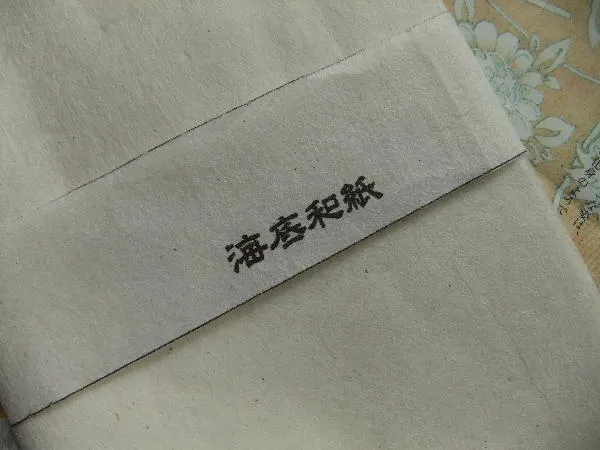 海底和紙